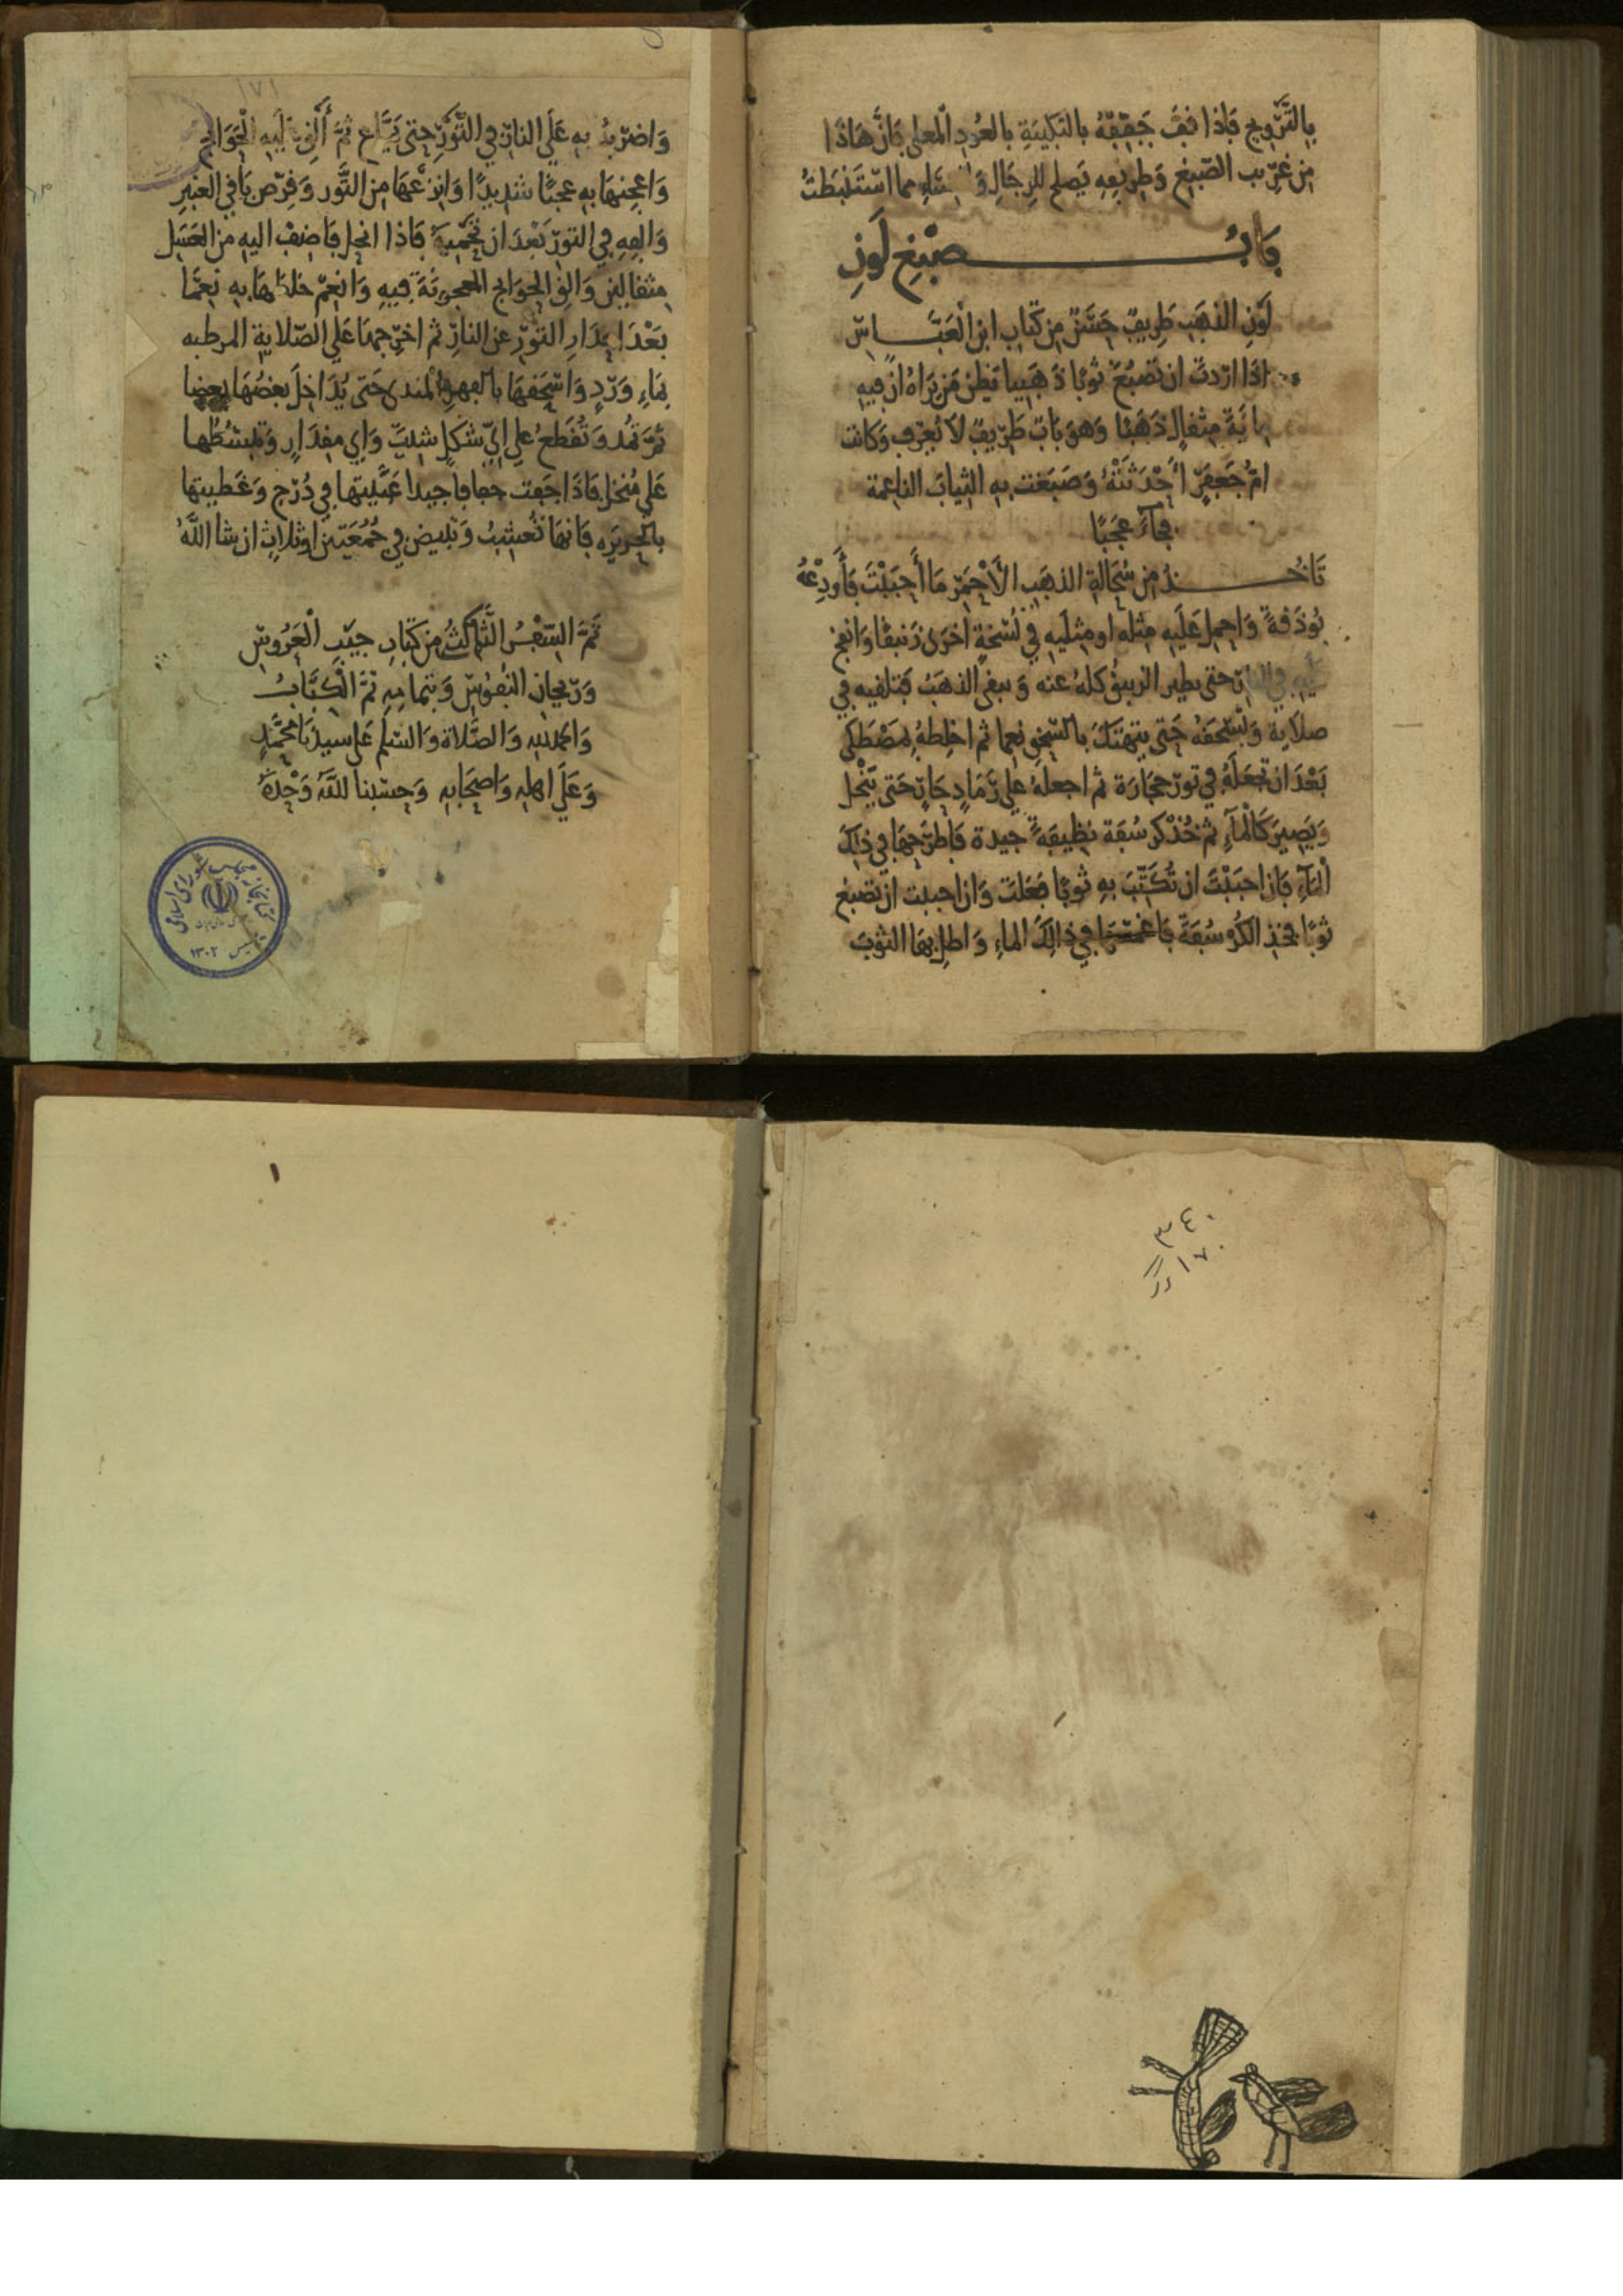 بِالتَّرْوِيحِ فَاذَا جَفَّ جَفِّفْهُ بالتبكِيتَةِ بالعُودِ المعلى فَانَّ هَاذَا
مِن غَرِيب الصَّبْغِ وَطَرِيفِهِ يَصلح للرِجَالِ وَ النسَاءِ مما استَنْبَطتُ
بَابُ صَبْغِ لَونِ
لَونِ الذهَبِ طَرِيفٌ حَسَنٌ مِن كِتَابِ ابنِ العَبَّاسِ
اذَا اردتَ ان تَصْبُغَ ثوبًا ذَهَبِيا يَظن مَن يَرَاهُ ان فِيهِ
مايَةَ مِثقالٍ ذَهَبًا وَهوَ بَابٌ طَرِيفٌ لَا يُعْرَف وَكانت
امُّ جَعفَرٍ أحْدَثَتْهُ وَصَبَغت بِهِ الثِيابَ الناعِمة
فجَآءَ عَجَبًا
تَاخُذُ مِن سُحَالةِ الذهَبِ الأَحْمَرِ مَا أَحبَبْتَ فَأَودِعْهُ
بُوذَقةً وَاحمِل عَلَيهِ مِثلَه او مِثلَيهِ في نُسْخَةٍ اخرَى زَنبقًا وَانفخ
عَلَيهِ في النارِ حتى يطير الزيبقُ كلهُ عنه وَيبقى الذهَبُ فتلقيه في
صلَايةٍ وَلتسْحَقهُ حَتى يَتهتَكَ بالسَّحقِ نِعِما ثم اخلِطهُ بِمَصْطَكى
بَعْدَ ان تجعَلَهُ في تَورِ حِجَارَة ثم اجعلهُ على رَمَادٍ حَارٍ حَتى يَنْحل
وَيَصِيرَ كَالْمآءِ ثم خُذ كرسُفَة نظِيفَةً جيدة فَاطرَحهَا في ذلِكَ
المآءِ فَان احبَبْتَ ان تُكَتِّبَ بِهِ ثوبًا فَعَلتَ وَان احببت ان تصبغ
ثوبًا فخذِ الكُرْسُفَةَ فاغمسها في ذالِكَ الماءِ وَاطلِ بهَا الثوبَ
١٧١
وَاضرِبهُ بِهِ عَلى النارِ في التَّوْرِ حتى يَمَّاع ثمَّ أَلقِ عَلَيهِ الحَوَائج
وَاعجِنهَا بِهِ عجنًا شدِيدًا وَانزعهَا مِن التَّور وَقرِّص بَاقي العَنبرِ
وَالقِهِ في التورِ بَعْدَ ان تحَمِّيهُ فَاذا انحل فَاضِفْ اليهِ مِن العَسَلِ
مِثقالَين وَالقِ الحوَائج المعجونَةَ فِيهِ وَانعِمْ خلطهَا بِهِ نِعِمَّا
بَعْدَ انزالِ التورِ عن النارِ ثم اخرِجهَا عَلى الصلايةِ المرطبه
بِمَاءِ وَردٍ وَاسْحَقهَا بالفهرِ المندى حَتى يُدَاخِلَ بعضُهَا بعضا
ثمَّ تمُد وَتُقَطعُ على ايِّ شَكلٍ شيتَ وَاي مِقدَارٍ وَتبسُطُها
عَلى مُنخل فَاذَا جَفت جفافا جيدا عَبَّيتها في دُرج وَغطيتها
بالحَرِيرَةِ فَانهَا تُعَشِّبُ وَتبيض في جُمُعَتين او ثلاثٍ ان شا اللَّهُ
تَمَّ السِّفْرُ الثَّالِثُ مِن كتَابِ جيبِ العَرُوسِ
وَرَيحانِ النفُوسِ وَبتمامِهِ تمَّ الكِتَابُ
وَالحمدُ لِلهِ وَالصَّلاة وَالسَّلم عَلى سيدِنَا مُحَمَّدٍ
وَعَلَى اهلِهِ وَاصحَابِهِ وَحسْبنا اللَّهُ وَحْدَهُ
كتابخانه مجلس شورای اسلامی
تأسیس ١٣٠٢
٣٤٠
١٧٠